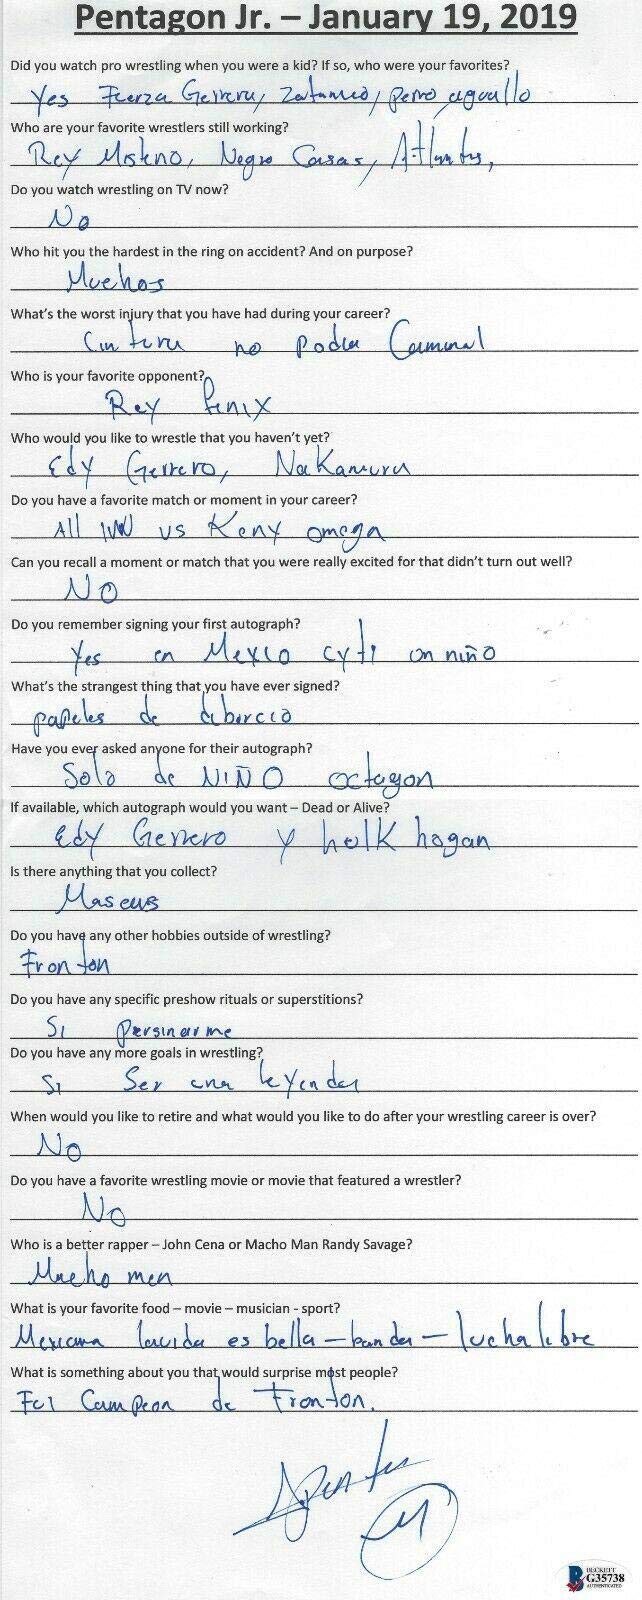 Pentagon Jr. – January 19, 2019
Did you watch pro wrestling when you were a kid? If so, who were your favorites?
Yes Fuerza Gerrera, perro aguallo
Who are your favorite wrestlers still working?
Rey Misteno, Negro Casas, Atlantis,
Do you watch wrestling on TV now?
No
Who hit you the hardest in the ring on accident? And on purpose?
Muchos
What's the worst injury that you have had during your career?
Cintura no podia Caminar
Who is your favorite opponent?
Rey fenix
Who would you like to wrestle that you haven't yet?
Edy Gerrero, Nakamura
Do you have a favorite match or moment in your career?
All INN vs Keny omega
Can you recall a moment or match that you were really excited for that didn't turn out well?
NO
Do you remember signing your first autograph?
Yes en Mexico cyti on niño
What's the strangest thing that you have ever signed?
papeles de diborcio
Have you ever asked anyone for their autograph?
Solo de NIÑO octagon
If available, which autograph would you want – Dead or Alive?
Edy Gerrero y holk hogan
Is there anything that you collect?
Mascaras
Do you have any other hobbies outside of wrestling?
Fronton
Do you have any specific preshow rituals or superstitions?
Si persinarme
Do you have any more goals in wrestling?
Si Ser una leyenda
When would you like to retire and what would you like to do after your wrestling career is over?
No
Do you have a favorite wrestling movie or movie that featured a wrestler?
No
Who is a better rapper – John Cena or Macho Man Randy Savage?
Macho men
What is your favorite food – movie – musician - sport?
Mexicana lavida es bella – banda – lucha libre
What is something about you that would surprise most people?
Fui Campeon de Fronton.
BECKETT
G35738
AUTHENTICATED